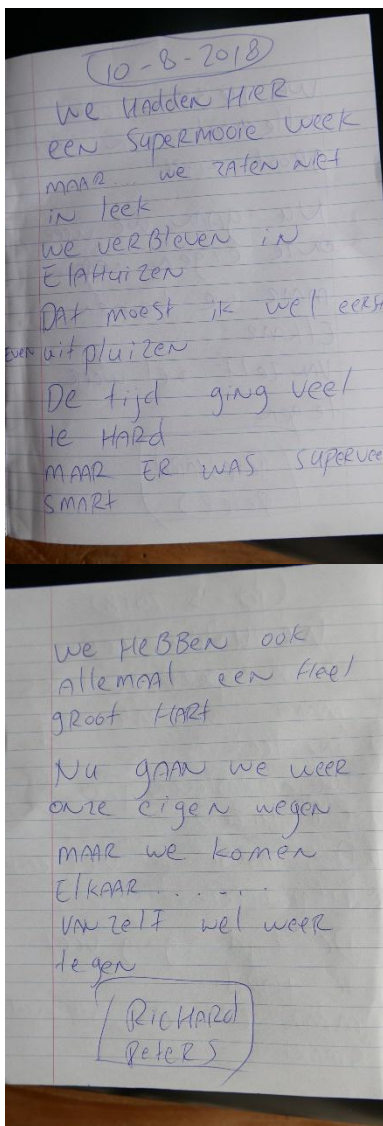 10-8-2018
We HADDEN HieR
een SupeRmooie week
MAAR... we zAten niet
in leek
we veRBleven in
ElAHuizen
DAt moest ik wel eerst
even uitpluizen
De tijd ging veel
te HARd
MAAR ER WAS supervee
SMARt
we HeBBen ook
AllemAAl een Heel
gRoot HARt
Nu gAAN we weer
onze eigen wegen
MAAR we komen
ElkAAR......
VAN zelf wel weeR
tegen
RiCHARd
PeteRS